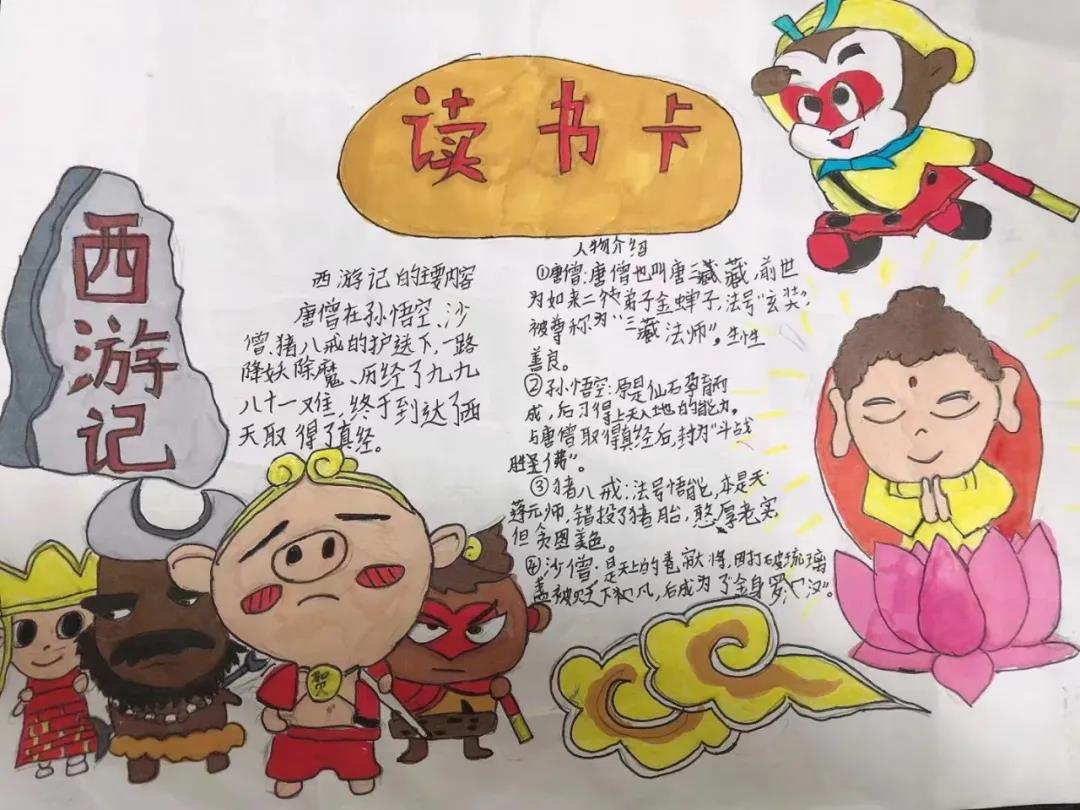 读书卡
西
游
记
西游记的主要内容
唐僧在孙悟空、沙
僧、猪八戒的护送下,一路
降妖除魔、历经了九九
八十一难,终于到达了西
天取得了真经。
人物介绍
①唐僧:唐僧也叫唐三藏藏,前世
为如来二徒弟子金蝉子,法号“玄奘”,
被尊称为“三藏法师”。生性
善良。
②孙悟空:原是仙石孕育而
成,后习得上天入地的能力。
与唐僧取得真经后,封为“斗战
胜圣佛”。
③猪八戒:法号悟能,本是天
蓬元帅,错投了猪胎,憨厚老实
但贪图美色。
④沙僧:是天上的卷歉将,因打破琉璃
盏被贬下和凡,后成为了金身罗汉”。